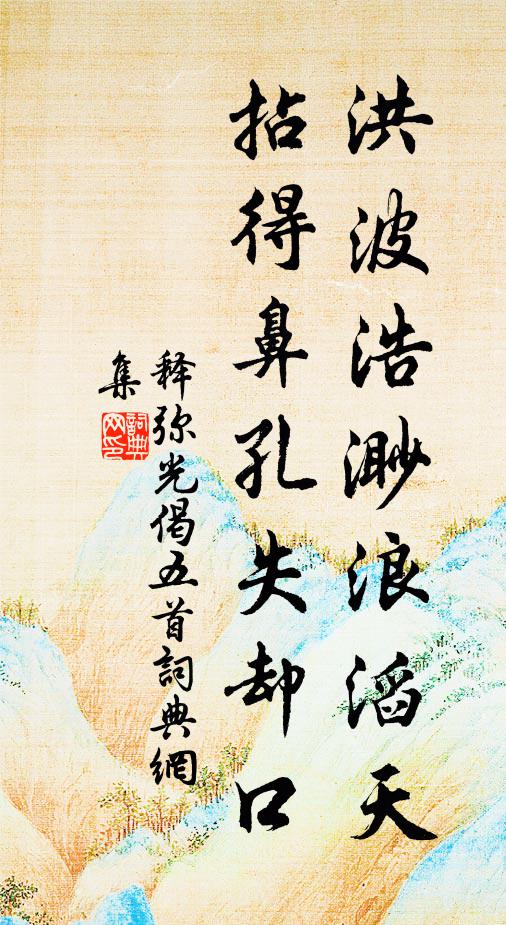 洪波浩渺浪滔天
拈得鼻孔失却口
释弥光偈五首詞典網
集
詞典
网印